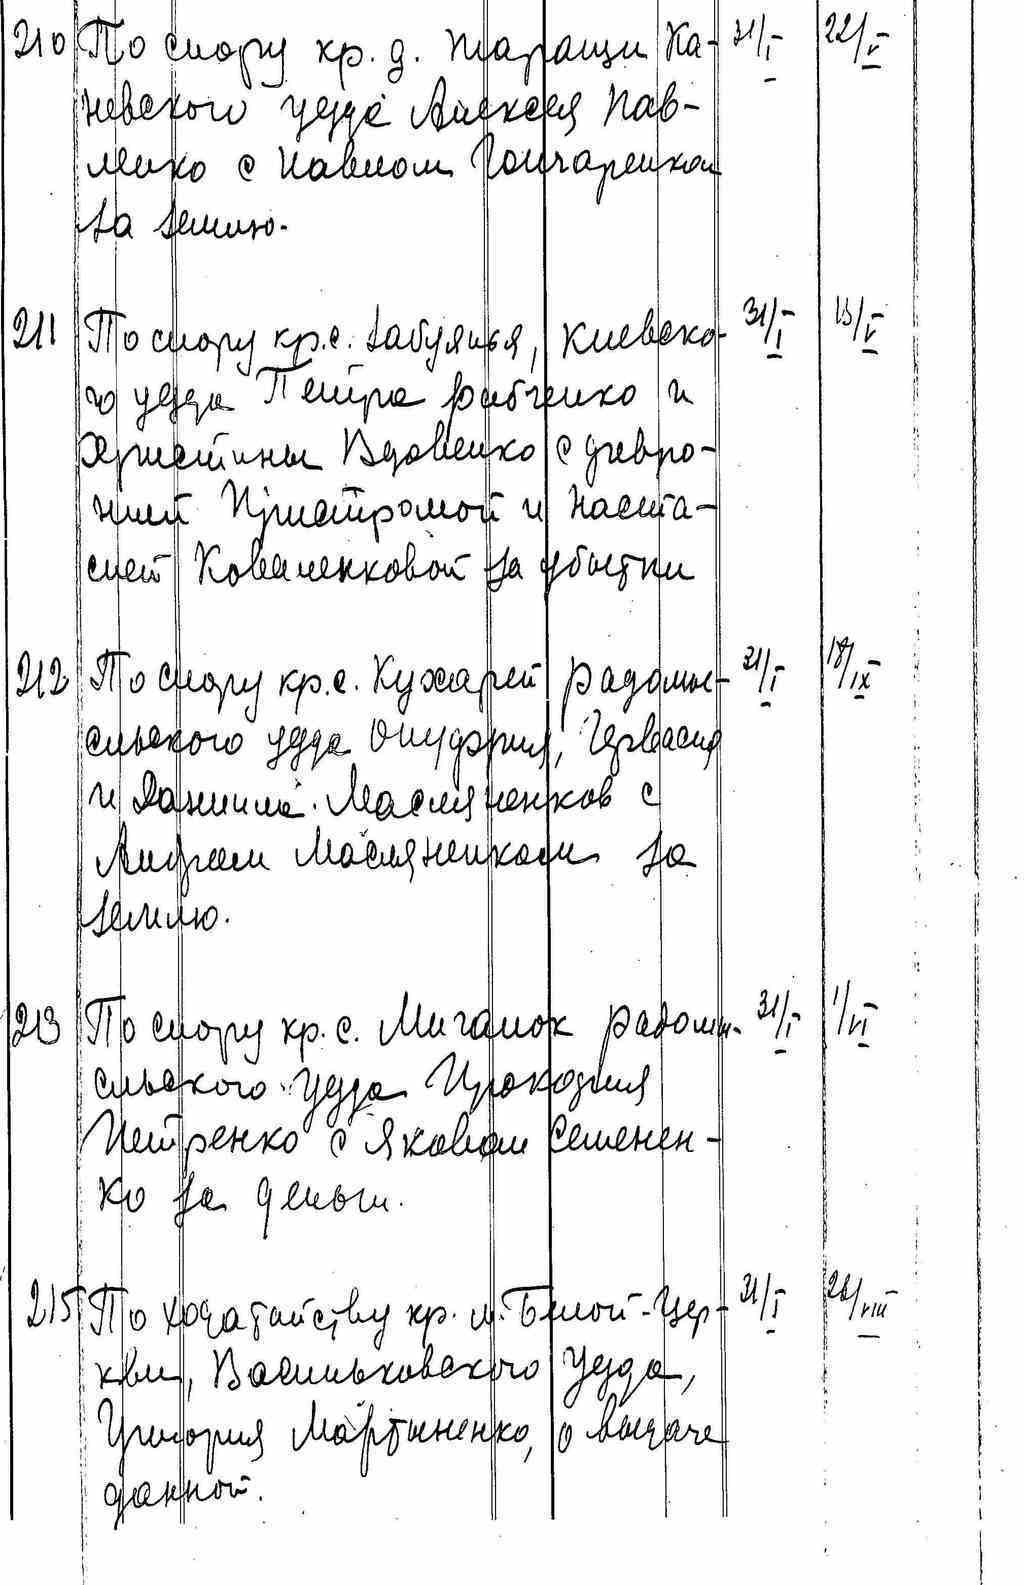 210 По спору кр. д. Таращи Ка- 31/I 22/V
невского уезда Алексея Пав-
ленко с Павлом Гончаренком
за землю.
211 По спору кр. с. Забуянья, Киевско- 31/I 13/V
го уезда Петра Рабченко и
Христины Вдовенко с
и Настa-
сией Коваленковой за убытки
212 По спору кр. с. Кухарей Радомы- 31/I 18/IX
сльского уезда Онуфрия, Гервасия
и Даниила Масляненков с
Андреем Масляненком за
землю.
213 По спору кр. с. Миганок Радомы- 31/I 1/VI
сльского уезда Прокофия
Петренко с Яковом Семенен-
ко за деньги.
215 По ходатайству кр. м. Белой-Цер- 31/I 26/VIII
кви, Васильковского уезда,
Григория Мартыненко, о выдаче
данной.